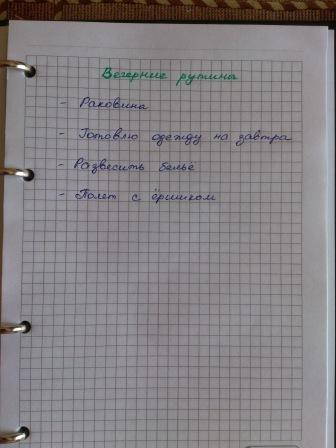 Вечерние рутина
- Раковина
- Готовлю одежду на завтра
- Развесить бельё
- Полет с ёршиком